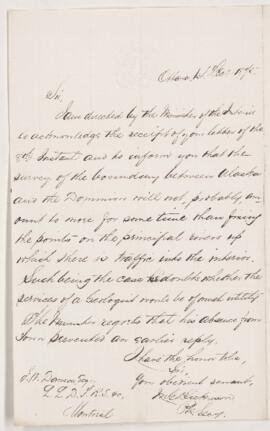 Sir,
I am directed by the Minister of the Interior
to acknowledge the receipt of your letter of the
8th Instant and to inform you that the
survey of the boundary between Alaska
and the Dominion will not, probably am
ount to more for some time than fixing
the points on the principal rivers up
which there is traffic into the interior.
Such being the case he doubts whether the
services of a Geologist would be of much utility
The Minister regrets that his absence from
town prevented an earlier reply.
I have the honor to be,
Sir,
Your obedient servant,
J. W. Dawson Esq.
L L D. F. R. S. &c.
Montreal